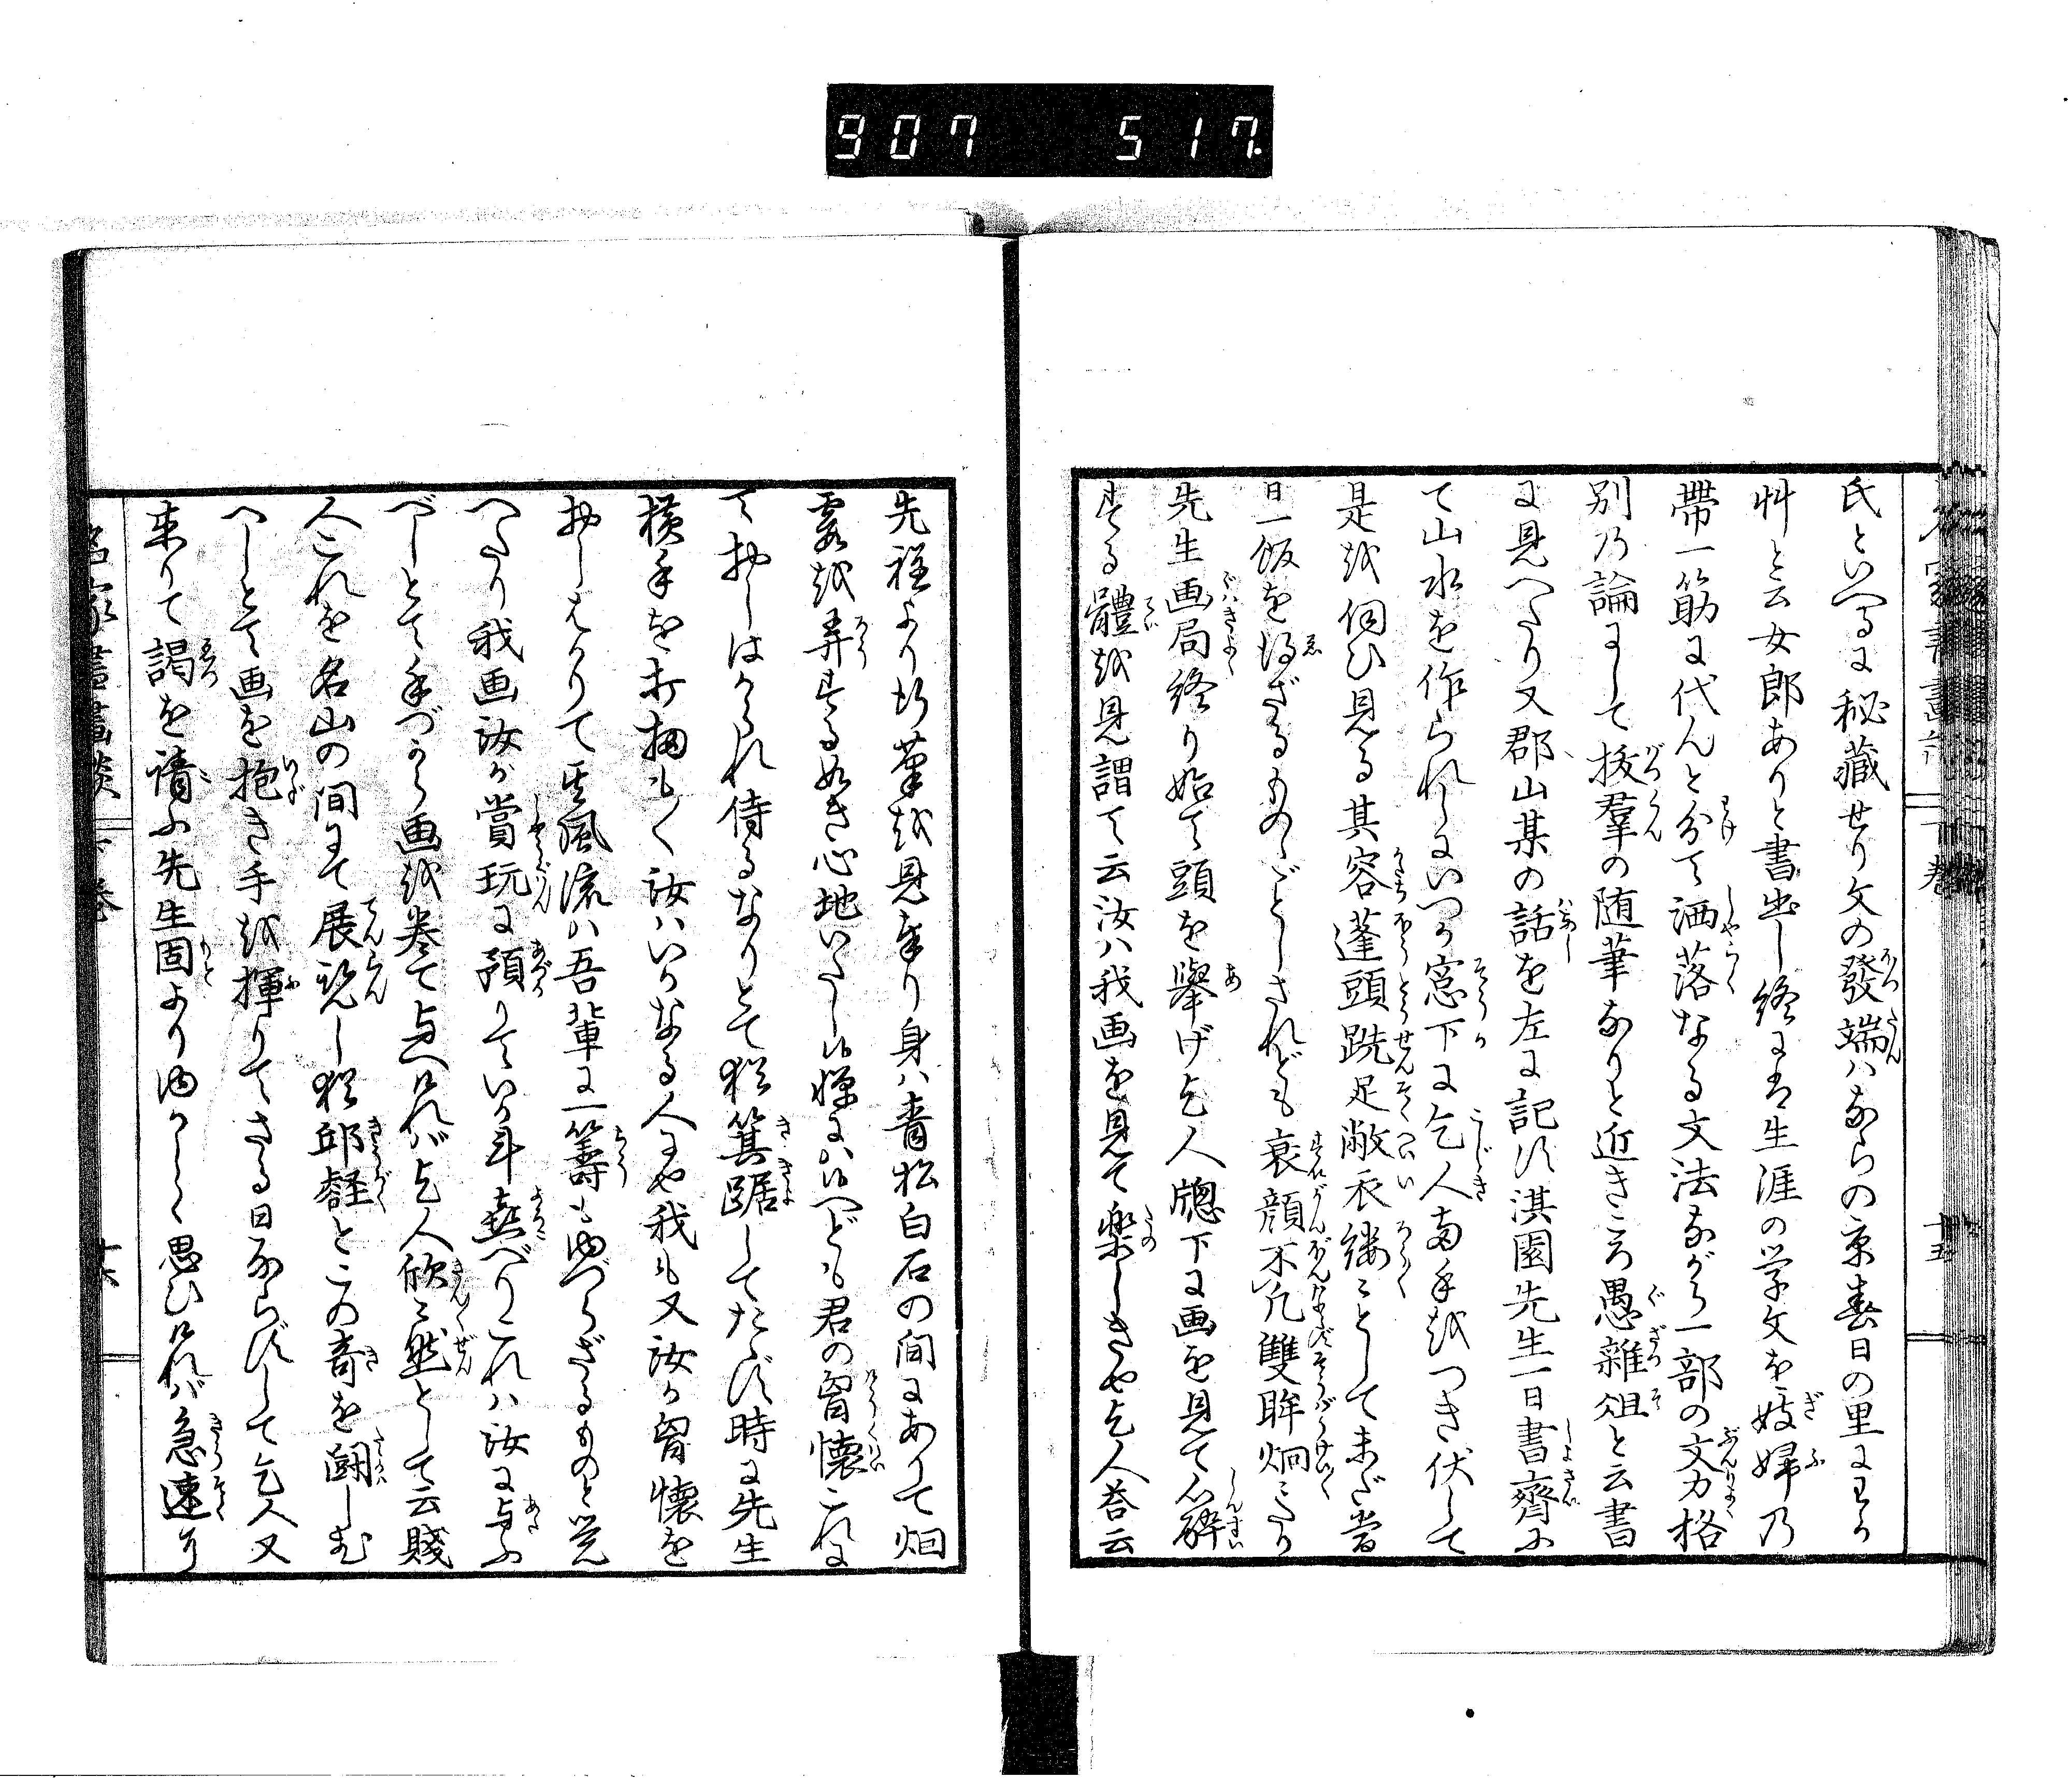 907 517
氏といへるに秘藏せり文の發端ハならの京春日の里にわか
艸と云女郎ありと書出し終に生涯の学文を妓婦乃
帶一筋に代んと分て洒落なる文法ながら一部の文力格
別乃論にして抜羣の随筆なりと近きころ愚雜俎と云書
に見へたり又郡山某の話を左に記す淇園先生一日書齋に
て山水を作られしにいつか窓下に乞人両手をつき伏して
是を伺ひ見る其容蓬頭跣足敝衣縷〻として未だ嘗
日一飯を得ざるものゝごとしされども衰顔不凡雙眸炯〻たり
先生画局終り始て頭を擧げ乞人牕下に画を見て心酔
する體を見謂て云汝ハ我画を見て楽しきや乞人荅云
先程より行筆を見奉り身ハ青松白石の間にありて烟
霞を弄する如き心地いたし候惲にハ候へども君の胷懐これに
ておしはかられ侍るなりとて猶箕踞してたゝず時に先生
横手を打扨も〱汝ハいかなる人にや我も又汝か胷懐を
おしえかりて其風流ハ吾輩に一籌もゆづらざるものと覚
へたり我画汝が賞玩に預りていか斗喜べりこれハ汝に与ふ
べしとて手づから画を巻て与へけれバ乞人欣〻然として云賤
人これを名山の間にて展覧し猶邱壑とこの奇を闘しむ
へしとて画を抱き手を揮りてさる日ならずして乞人又
来りて謁を請ふ先生固よりゆかしく思ひけれバ急速に
名家書畫談 下巻 十五
名家書畫談 下巻 十六